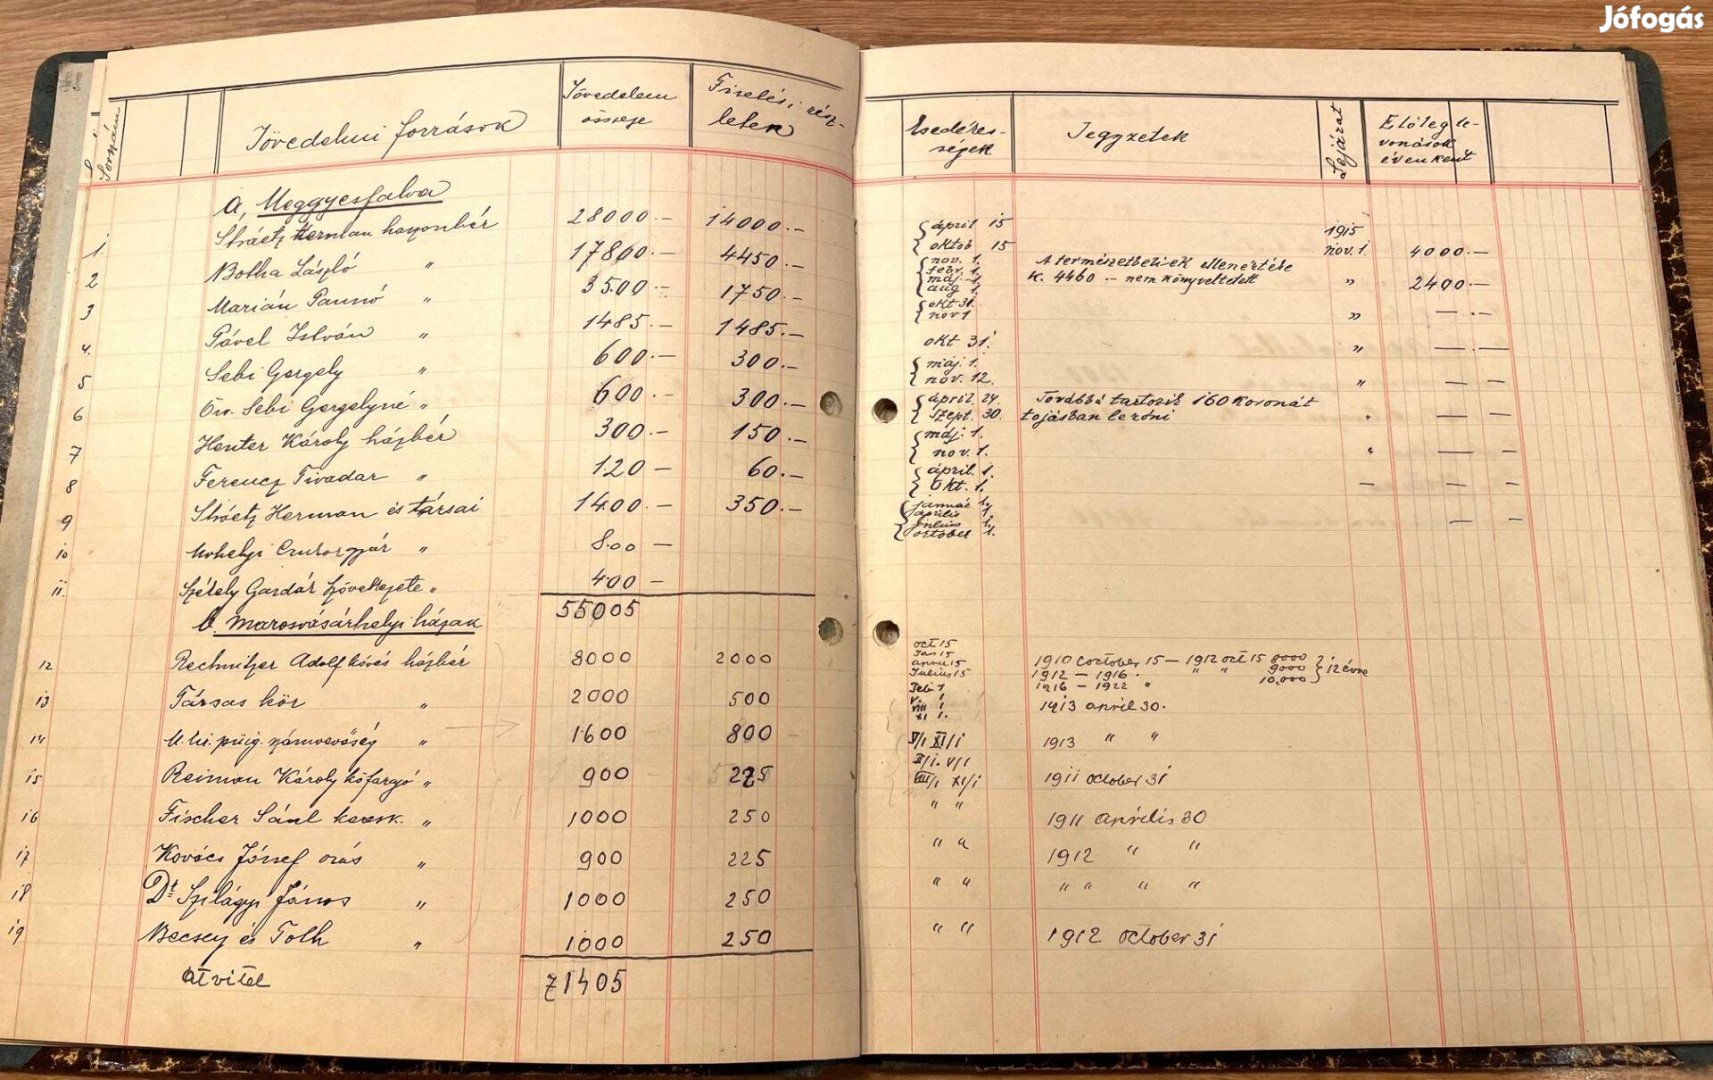 Jófogás
Sorszám
Jövedelmi források
Jövedelem összege
Fizetési részletek
Esedékességek
Jegyzetek
Lejárat
Előleg levonások évenként
a, Meggyesfalva
1. Herman haszonbér 28000.— 14000.— április 15 október 15 1915 nov. 1. 4000.—
2 Botha László " 17860.— 4450.— nov. 1. febr. 1. máj. 1. aug. 1. A természetbeliek ellenértéke
K. 4460.— nem könyveltetett " 2400.—
3 Marián " 3500.— 1750.— okt 31. nov 1 " — . —
4. Pável István " 1485.— 1485.— okt 31. " — . —
5 Sebi Gergely " 600.— 300.— máj. 1. nov. 12. " — —
6 Öv. Sebi Gergelyné " 600.— 300.— április. 24. szept. 30. Továbbá tartozik 160 koronát
tojásban leróni " — —
7 Henter Károly házbér 300.— 150.— máj. 1. nov. 1. " — —
8 Ferencz Tivadar " 120 — 60.— április. 1. okt. 1. — — —
9 Herman és társai 1400.— 350.— január 1. április 1. július 1. október 1. — —
10 " 800 —
11. Székely Gazdák Szövetkezete " 400 —
55005
b. Marosvásárhelyi házak
12 Adolf házbér 8000 2000 oct 15 Jan 15 april 15 Julius 15 1910 october 15 — 1912 oct 15 8000
1912 — 1916. " " 9000 12 évre
1916 — 1922 " 10.000
13 Társas kör " 2000 500 Feb. 1 V. 1 VIII 1 XI 1. 1913 april 30.
14 M. kir. számvevőség " 1600 800 V/1 XI/1 1913 " "
15 Reiman Károly kőfaragó " 900 225 II/1. V/1 VIII/1 XI/1 1911 october 31
16 Fischer Saul keresk. " 1000 250 " " 1911 április 30
17 Kovács József órás " 900 225 " " 1912 " "
18 Dr Szilágyi János " 1000 250 " " " " " "
19 Becsey és Toth " 1000 250 " " 1912 october 31
átvitel 71405